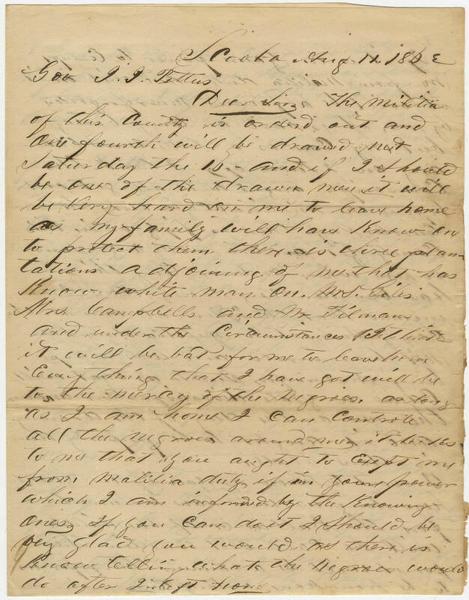 Scooba Aug. 12 1862
Gov J. J. Pettus
Dear Sir, The militia
of this County is orderd out and
one fourth will be drawed next
Saturday the 16 and if I should
be one of the drawn men it will
be very hard on me to leave home
as my family will have know one
to protect them there is three plan
tations adjoining of me that has
know white man on Mrs.
Mrs Campbells and Mr Tilman
and under the Circumstances I think
it will be bad for me to leave home
Every thing that I have got will be
to the mercy of the Negroes as long
as I am home I can controle
all the negroes around me it seems
to me that you aught to Exept me
from malitia duty if in your power
which I am informed by the Knowing
ones, If you can do it I should be
very glad you would as there is
know tellin what the Negroes would
do after I left home